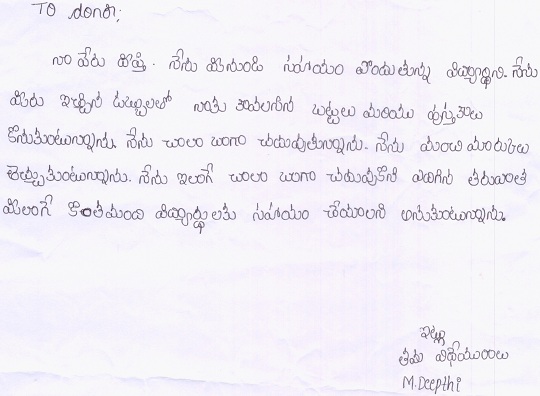 To donar;
నా పేరు దీప్తి. నేను మీనుండి సహాయం పొందుతున్న విద్యార్థిని. నేను
మీరు ఇచ్చిన డబ్బులతో నాకు కావలసిన బట్టలు మరియు పుస్తకాలు
కొనుకుంటున్నాను. నేను చాలా బాగా చదువుతున్నాను. నేను మంచి మార్కులు
తెచ్చుకుంటున్నాను. నేను ఇలాగే చాలా బాగా చదువుకొని ఎదిగిన తరువాత
మీలాగే కొంతమంది విద్యార్థులకు సహాయం చేయాలని అనుకుంటున్నాను.
ఇట్లు
తమ విధేయురాలు
M.Deepthi